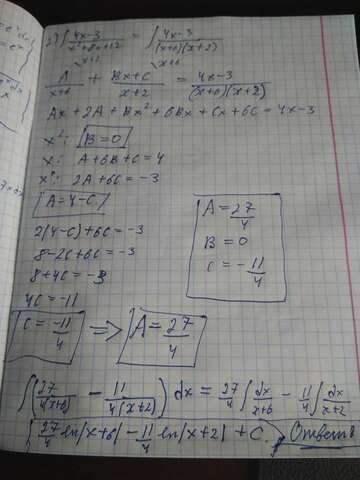 2) ∫ 4x-3 / x²+8x+12 = ∫ 4x-3 / (x+6)(x+2)
A / x+6 + Bx+C / x+2 = 4x-3 / (x+6)(x+2)
Ax + 2A + Bx² + 6Bx + Cx + 6C = 4x-3
x²: B=0
x: A+6B+C=4
x⁰: 2A+6C=-3
A=4-C
2(4-C)+6C=-3
8-2C+6C=-3
8+4C=-3
4C=-11
C = -11/4 => A = 27/4
A = 27/4
B = 0
C = -11/4
∫(27/4(x+6) - 11/4(x+2)) dx = 27/4 ∫ dx/x+6 - 11/4 ∫ dx/x+2
27/4 ln|x+6| - 11/4 ln|x+2| + C. Ответ